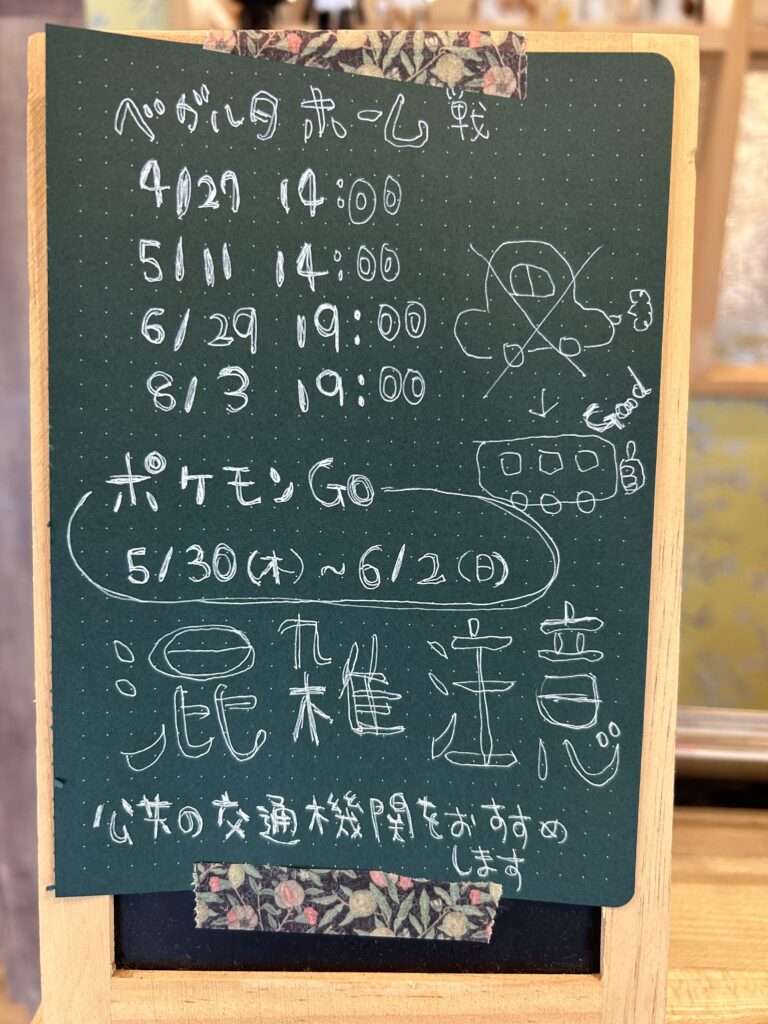 ベガルタ ホーム戦
4/27 14:00
5/11 14:00
6/29 19:00
8/3 19:00
Good
ポケモンGO
5/30(木)~6/2(日)
混雑注意
公共の交通機関をおすすめ
します